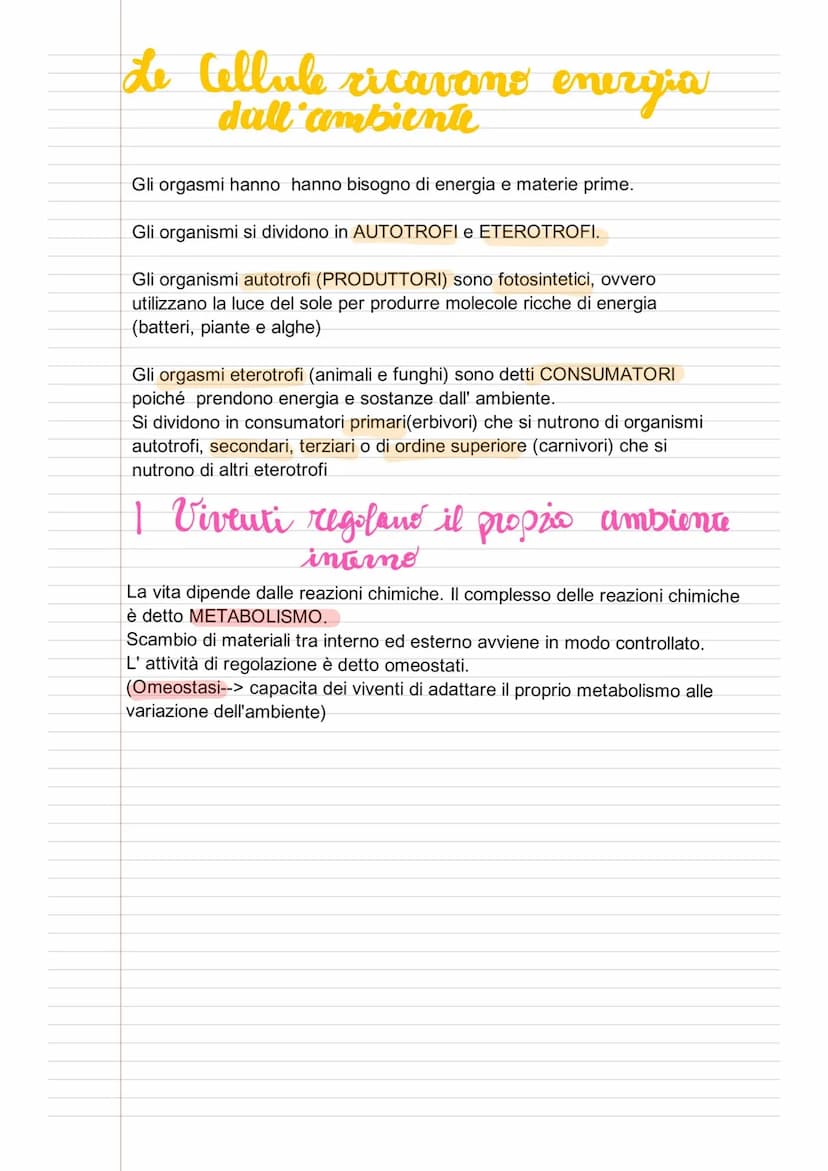 Le Cellule ricavano energia
dall'ambiente
Gli orgasmi hanno  hanno bisogno di energia e materie prime.
Gli organismi si dividono in AUTOTROFI e ETEROTROFI.
Gli organismi autotrofi (PRODUTTORI) sono fotosintetici, ovvero
utilizzano la luce del sole per produrre molecole ricche di energia
(batteri, piante e alghe)
Gli orgasmi eterotrofi (animali e funghi) sono detti CONSUMATORI
poiché  prendono energia e sostanze dall' ambiente.
Si dividono in consumatori primari(erbivori) che si nutrono di organismi
autotrofi, secondari, terziari o di ordine superiore (carnivori) che si
nutrono di altri eterotrofi
I Viventi regolano il propio ambiente
interno
La vita dipende dalle reazioni chimiche. Il complesso delle reazioni chimiche
è detto METABOLISMO.
Scambio di materiali tra interno ed esterno avviene in modo controllato.
L' attività di regolazione è detto omeostati.
(Omeostasi--> capacita dei viventi di adattare il proprio metabolismo alle
variazione dell'ambiente)